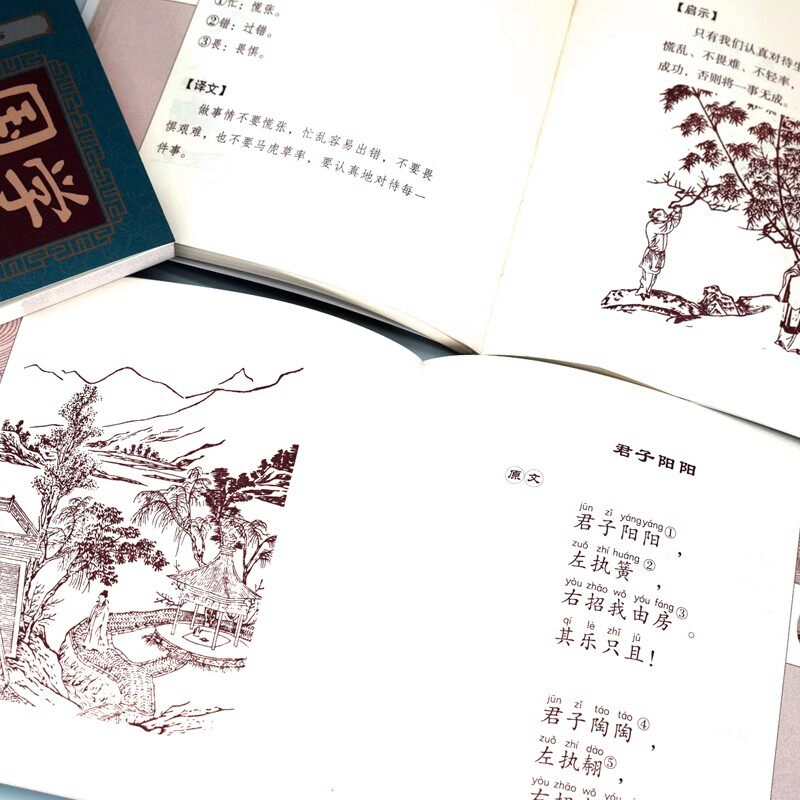 国学
①忙：慌张。
②错：过错。
③畏：畏惧。
【译文】
做事情不要慌张，忙乱容易出错，不要畏
惧艰难，也不要马虎草率，要认真地对待每一
件事。
【启示】
只有我们认真对待生
慌乱、不畏难、不轻率，
成功，否则将一事无成。
君子阳阳
原文
jūn zǐ yángyáng
君子阳阳①，
zuǒ zhí huáng
左执簧②，
yòu zhāo wǒ yóu fáng
右招我由房③。
qí lè zhǐ jū
其乐只且！
jūn zǐ táo táo
君子陶陶④，
zuǒ zhí dào
左执翿⑤，
yòu zhāo wǒ yóu
右招我